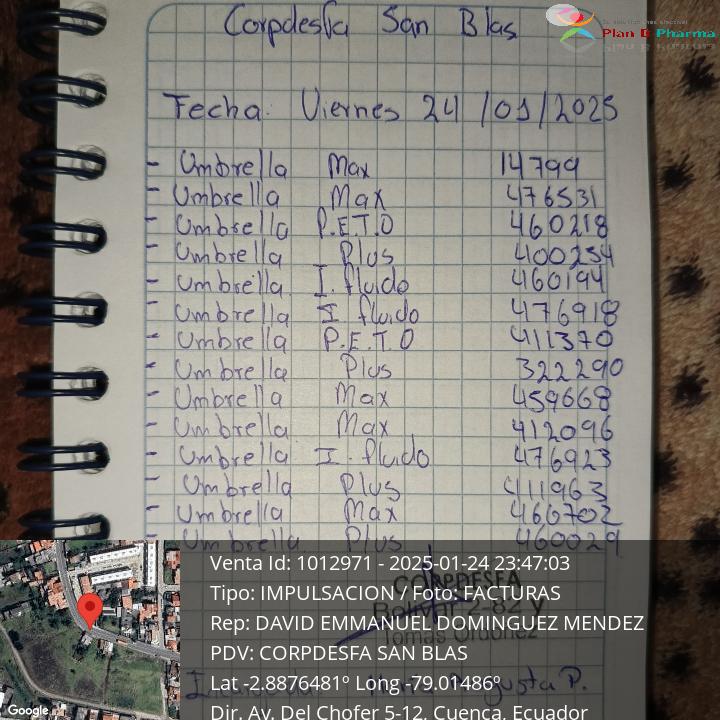 Corpdesfa San Blas
Plan B Pharma
Fecha: Viernes 24/01/2025
- Umbrella Max 14799
- Umbrella Max 476531
- Umbrella P.E.T.O 460218
- Umbrella Plus 400254
- Umbrella I. fluido 460194
- Umbrella I fluido 476918
- Umbrella P.E.T.O 411370
- Umbrella Plus 322290
- Umbrella Max 459668
- Umbrella Max 412096
- Umbrella I. fluido 476923
- Umbrella Plus 411963
- Umbrella Max 460702
- Umbrella Plus 460029
Venta Id: 1012971 - 2025-01-24 23:47:03
CORPDESFA
Tipo: IMPULSACION / Foto: FACTURAS
Bolívar 2-82 y
Rep: DAVID EMMANUEL DOMINGUEZ MENDEZ
Tomás Ordóñez
PDV: CORPDESFA SAN BLAS
Lat -2.8876481° Long -79.01486°
P.
Dir. Av. Del Chofer 5-12, Cuenca, Ecuador
Google